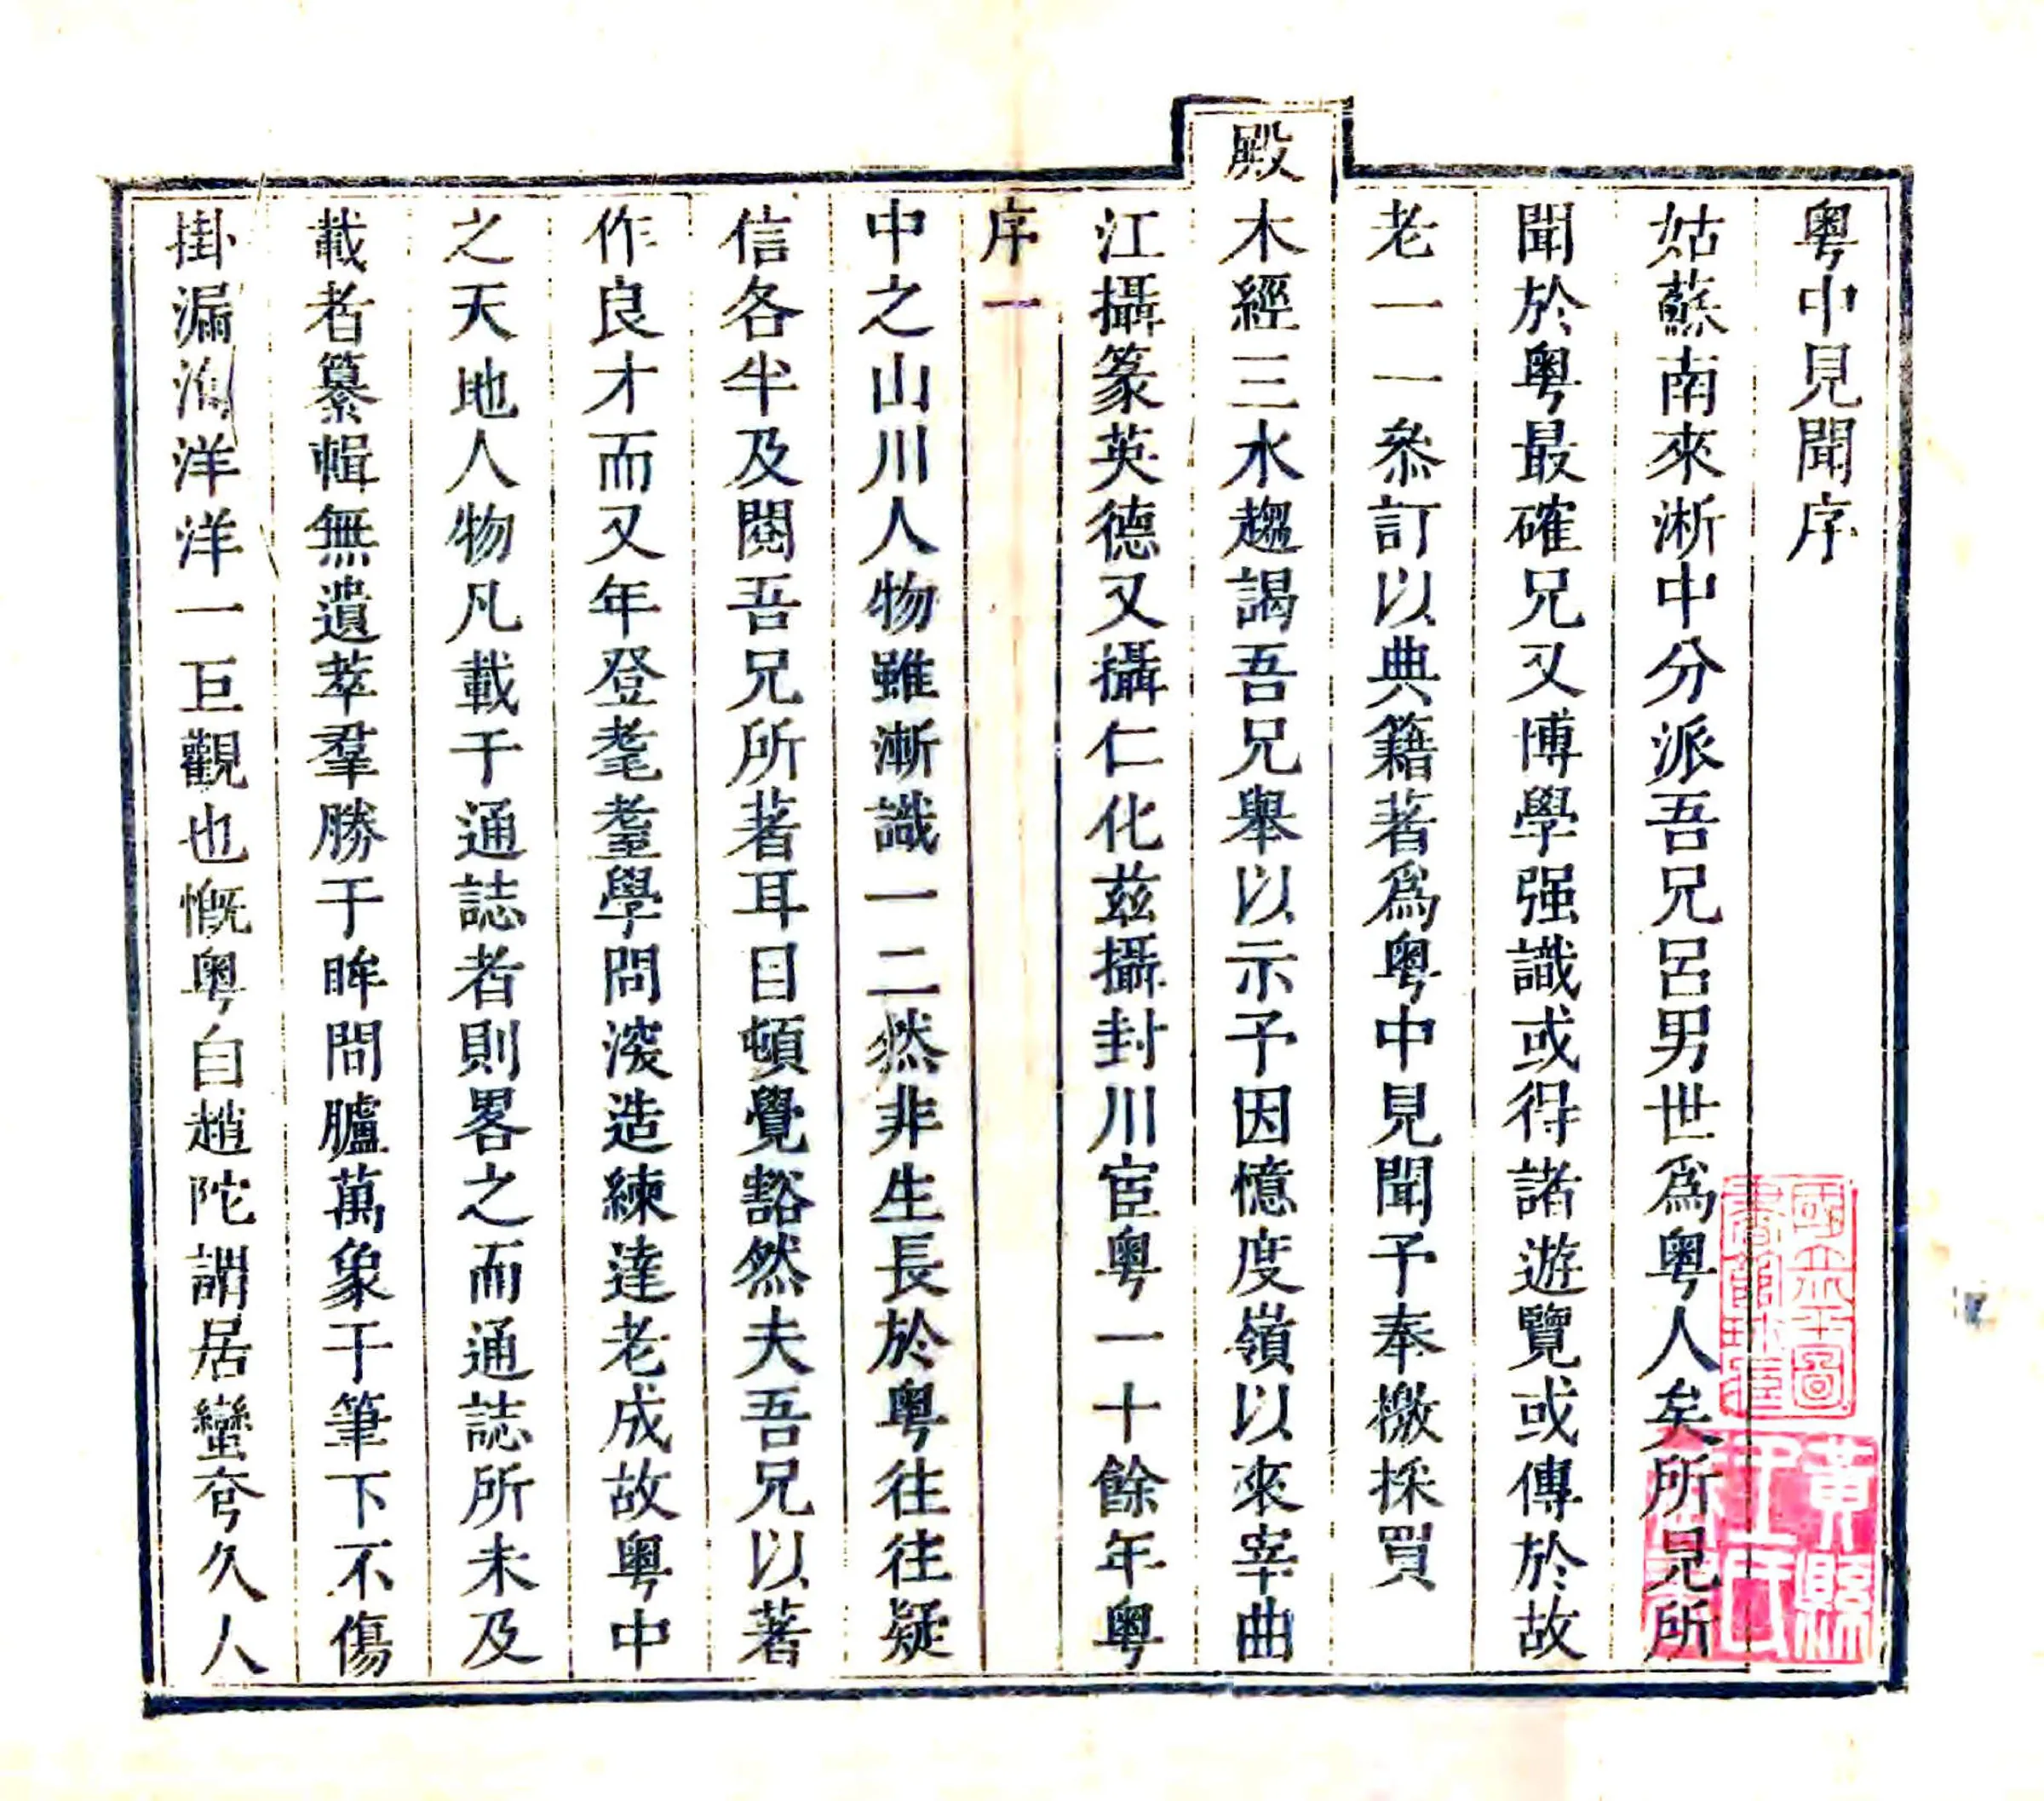 粵中見聞序
姑蘇南來淅中分派吾兄呂男世爲粵人矣所見所
聞於粵最確兄又博學强識或得諸遊覽或傳於故
老一一叅訂以典籍著爲粵中見聞予奉檄採買
殿木經三水趨謁吾兄舉以示予因憶度嶺以來宰曲
江攝篆英德又攝仁化兹攝封川宦粵一十餘年粵
序一
中之山川人物雖漸識一二然非生長於粵往往疑
信各半及閱吾兄所著耳目頓覺豁然夫吾兄以著
作良才而又年登耄耋學問深造練達老成故粵中
之天地人物凡載于通誌者則畧之而通誌所未及
載者纂輯無遺萃羣勝于眸間臚萬象于筆下不傷
掛漏洵洋洋一巨觀也慨粵自趙陀謂居蠻夸久人
國立北平圖
書館珍藏
黃縣
王氏